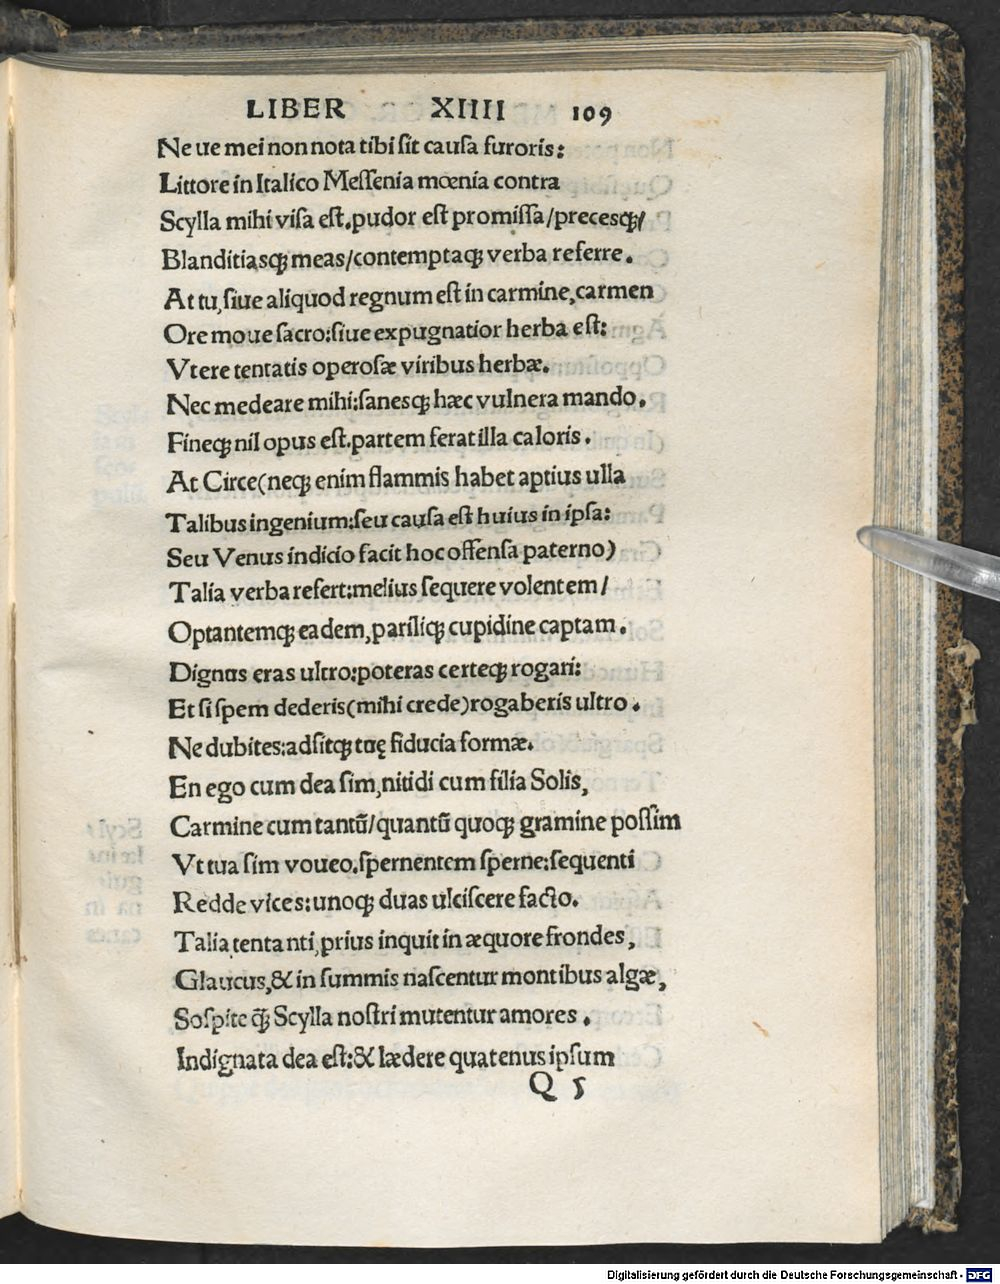 LIBER XIIII 109
Ne ue mei non nota tibi sit causa furoris:
Littore in Italico Messenia mœnia contra
Scylla mihi uisa est. pudor est promissa/precesq;/
Blanditiasq; meas/contemptaq; verba referre.
At tu, siue aliquod regnum est in carmine, carmen
Ore moue sacro: siue expugnatior herba est:
Vtere tentatis operosæ viribus herbæ.
Nec medeare mihi: sanesq; hæc vulnera mando.
Fineq; nil opus est. partem ferat illa caloris.
At Circe (neq; enim flammis habet aptius ulla
Talibus ingenium: seu causa est huius in ipsa:
Seu Venus indicio facit hoc offensa paterno)
Talia verba refert: melius sequere volentem/
Optantemq; eadem, pariliq; cupidine captam.
Dignus eras ultro: poteras certeq; rogari:
Et si spem dederis (mihi crede) rogaberis ultro.
Ne dubites: adsitq; tuę fiducia formæ.
En ego cum dea sim, nitidi cum filia Solis,
Carmine cum tantũ/quantũ quoq; gramine possim
Vt tua sim voueo. spernentem sperne: sequenti
Redde vices: unoq; duas ulciscere facto.
Talia tentanti, prius inquit in æquore frondes,
Glaucus, & in summis nascentur montibus algæ,
Sospite q̃ Scylla nostri mutentur amores.
Indignata dea est: & lædere quatenus ipsum
Q 5
Digitalisierung gefördert durch die Deutsche Forschungsgemeinschaft - DFG